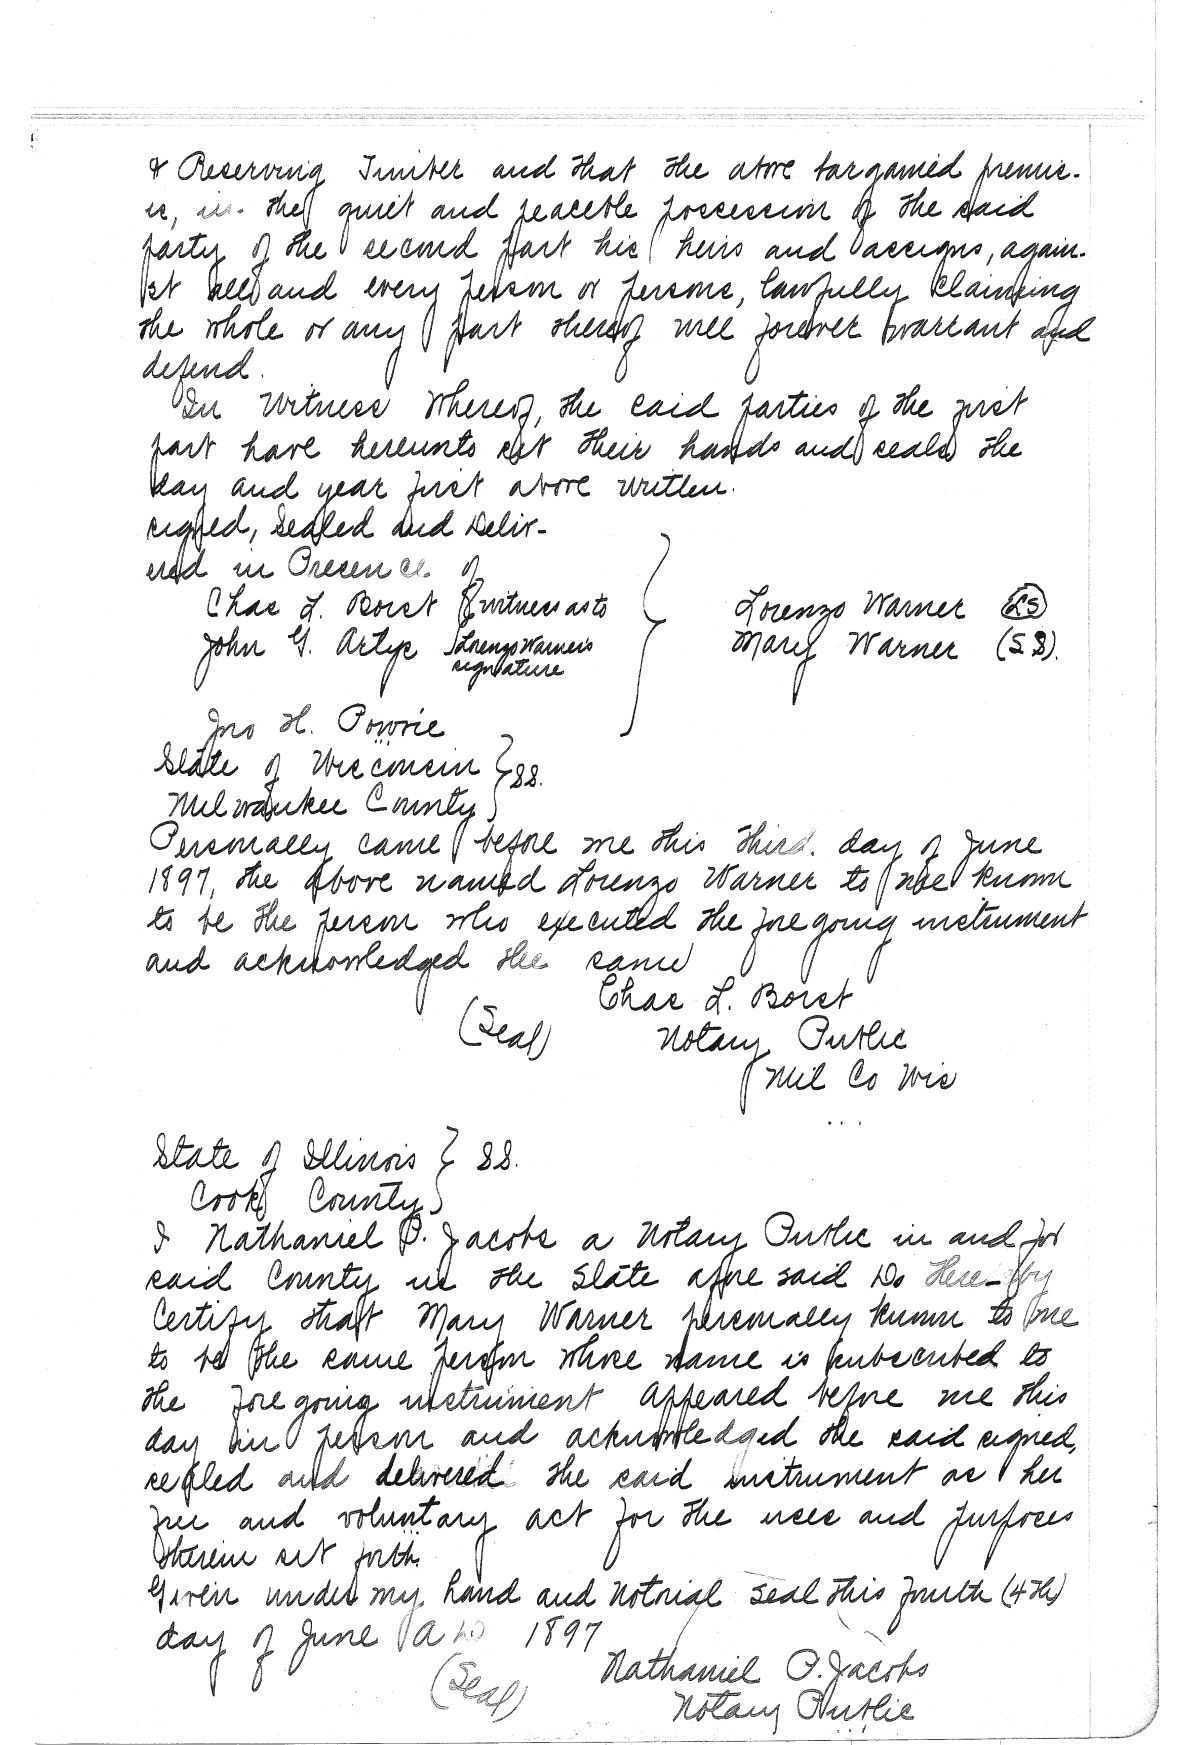 & Reserving Timber and that the above bargained premis-
es, in the quiet and peaceble possession of the said
party of the second part his heirs and assigns, again-
st all and every person or persons, lawfully claiming
the whole or any part thereof will forever warrant and
defend.
In Witness Whereof, the said parties of the first
part have hereunto set their hands and seals the
day and year first above written.
signed, Sealed and Deliv-
ered in Presence of
Chas L. Borst { witness as to Lorenzo Warner (LS)
John G. Lorenzo Warner's signature Mary Warner (S S).
Jno H. Powrie
State of Wisconsin } SS.
Milwaukee County
Personally came before me this third. day of June
1897, the above named Lorenzo Warner to me known
to be the person who executed the fore going instrument
and acknowledged the same
Chas L. Borst
(Seal) Notary Public
Mil Co Wis
State of Illinois } SS.
Cook County
I Nathaniel P. Jacobs a Notary Public in and for
said County in the State afore said Do Here-by
Certify that Mary Warner personally known to me
to be the same person whose name is subscribed to
the fore going instrument appeared before me this
day in person and acknowledged the said signed,
sealed and delivered the said instrument as her
free and voluntary act for the uses and purposes
therein set forth.
Given under my hand and Notrial seal this fourth (4th)
day of June A D 1897
Nathaniel P. Jacobs
(Seal) Notary Public